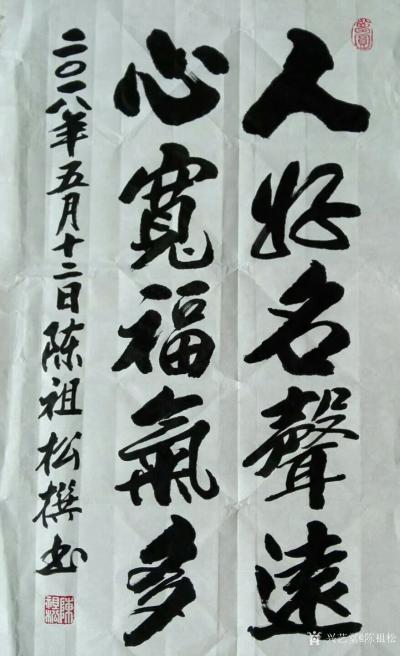 人好名聲遠
心寬福氣多
二〇一八年五月十二日陈祖松撰书
陈祖松
兴艺堂@陈祖松